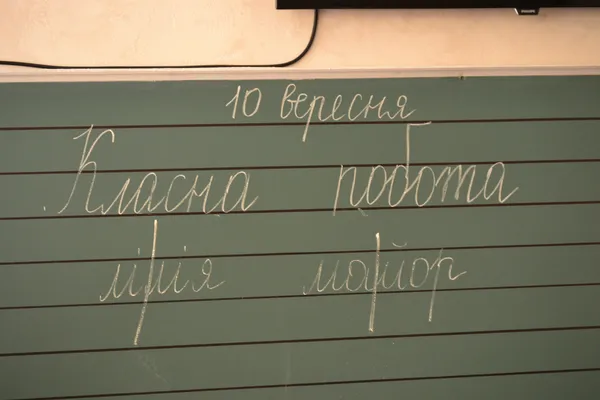 10 вересня
Класна робота
майор